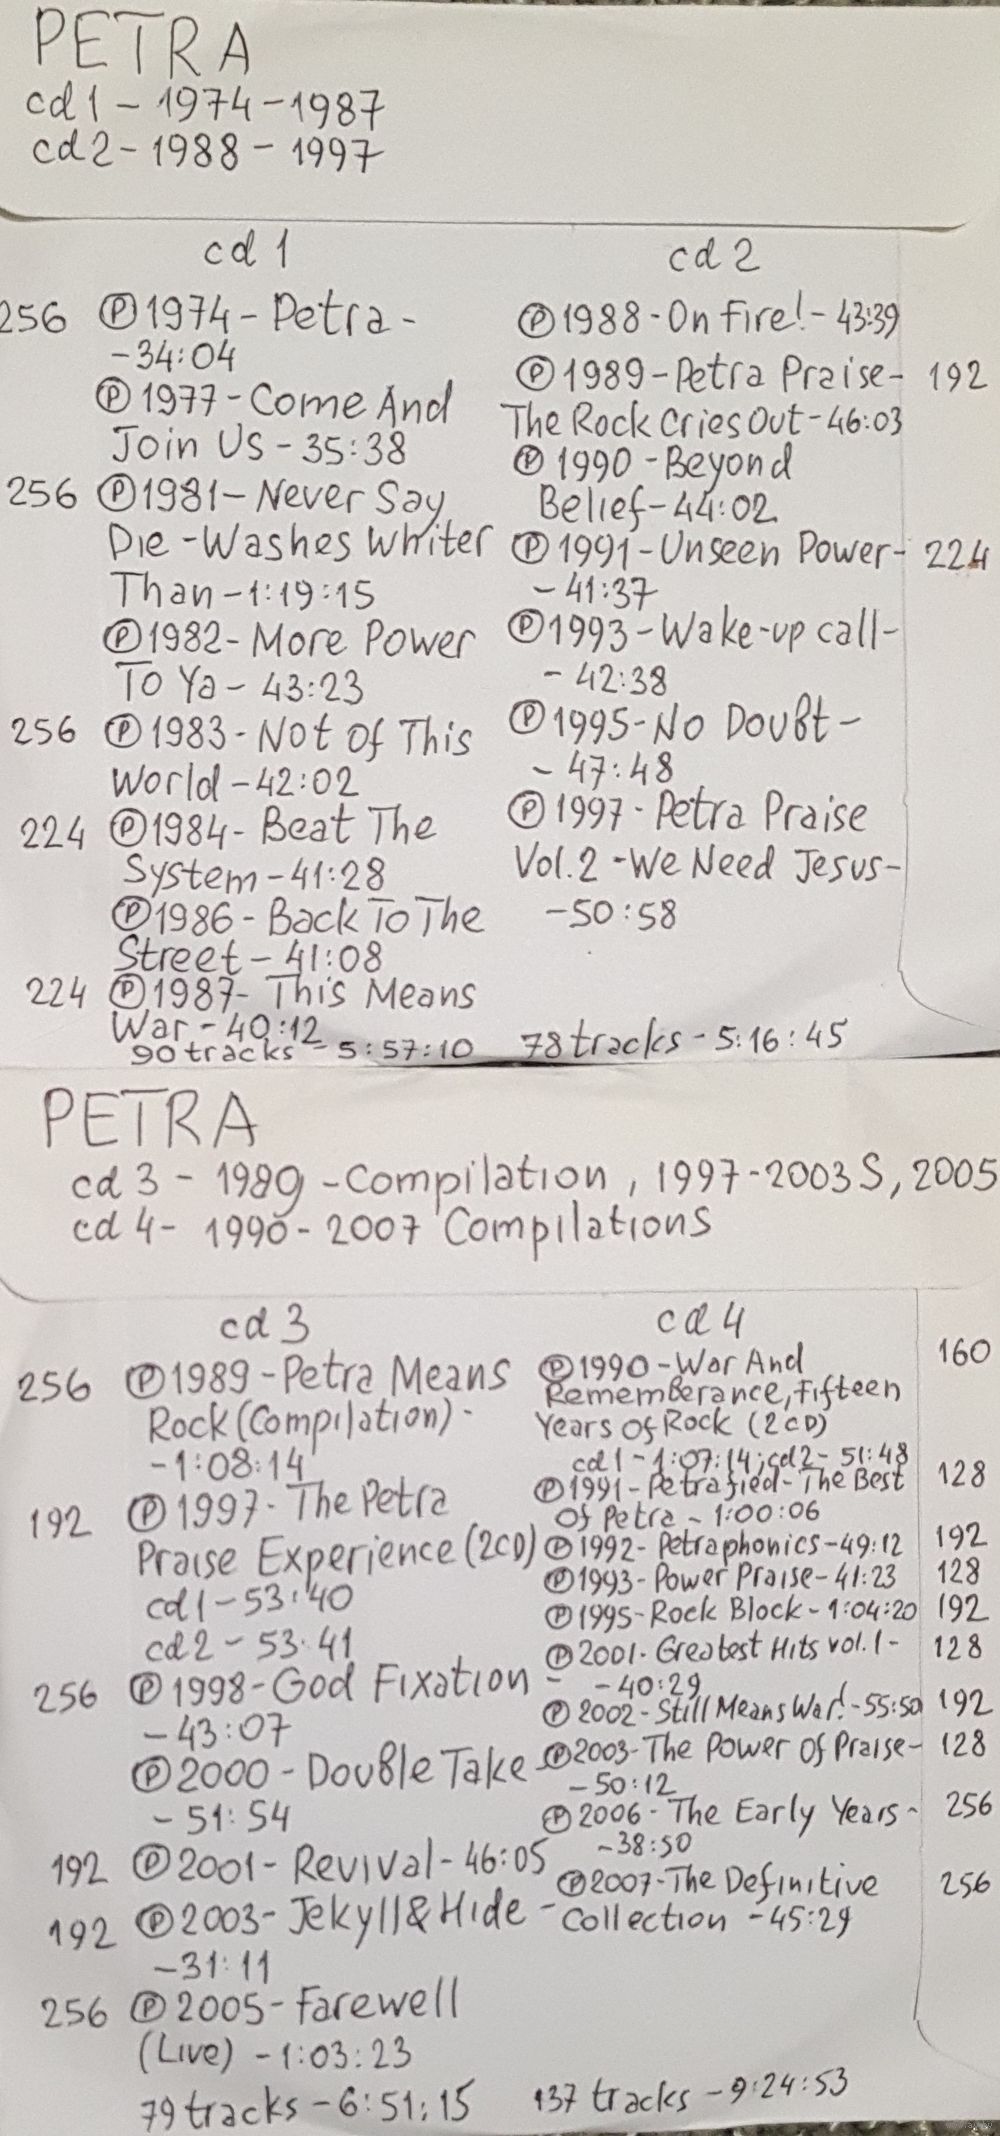 PETRA
cd1 - 1974-1987
cd2 - 1988 - 1997
cd 1
256 Ⓟ1974 - Petra -
-34:04
Ⓟ1977 - Come And
Join Us - 35:38
256 Ⓟ1981 - Never Say
Die - Washes Whiter
Than - 1:19:15
Ⓟ1982 - More Power
To Ya - 43:23
256 Ⓟ1983 - Not Of This
World - 42:02
224 Ⓟ1984 - Beat The
System - 41:28
Ⓟ1986 - Back To The
Street - 41:08
224 Ⓟ1987 - This Means
War - 40:12
90 tracks - 5:57:10
cd 2
Ⓟ1988 - On Fire! - 43:39
Ⓟ1989 - Petra Praise - 192
The Rock Cries Out - 46:03
Ⓟ1990 - Beyond
Belief - 44:02
Ⓟ1991 - Unseen Power - 224
- 41:37
Ⓟ1993 - Wake-up call -
- 42:38
Ⓟ1995 - No Doubt -
- 47:48
Ⓟ1997 - Petra Praise
Vol. 2 - We Need Jesus -
-50:58
78 tracks - 5:16:45
PETRA
cd 3 - 1989 - Compilation, 1997-2003 S, 2005
cd 4 - 1990 - 2007 Compilations
cd 3
256 Ⓟ1989 - Petra Means
Rock (Compilation) -
-1:08:14
192 Ⓟ1997 - The Petra
Praise Experience (2CD)
cd1 - 53:40
cd2 - 53:41
256 Ⓟ1998 - God Fixation -
-43:07
Ⓟ2000 - Double Take -
- 51:54
192 Ⓟ2001 - Revival - 46:05
192 Ⓟ2003 - Jekyll & Hide -
-31:11
256 Ⓟ2005 - Farewell
(Live) - 1:03:23
79 tracks - 6:51:15
cd 4
Ⓟ1990 - War And 160
Rememberance, Fifteen
Years Of Rock (2CD)
cd1 - 1:07:14; cd2 - 51:48
Ⓟ1991 - Petrafied - The Best 128
Of Petra - 1:00:06
Ⓟ1992 - Petraphonics - 49:12 192
Ⓟ1993 - Power Praise - 41:23 128
Ⓟ1995 - Rock Block - 1:04:20 192
Ⓟ2001 - Greatest Hits vol. 1 - 128
-40:29
Ⓟ2002 - Still Means War! - 55:50 192
Ⓟ2003 - The Power Of Praise - 128
-50:12
Ⓟ2006 - The Early Years - 256
-38:50
Ⓟ2007 - The Definitive 256
Collection - 45:29
137 tracks - 9:24:53